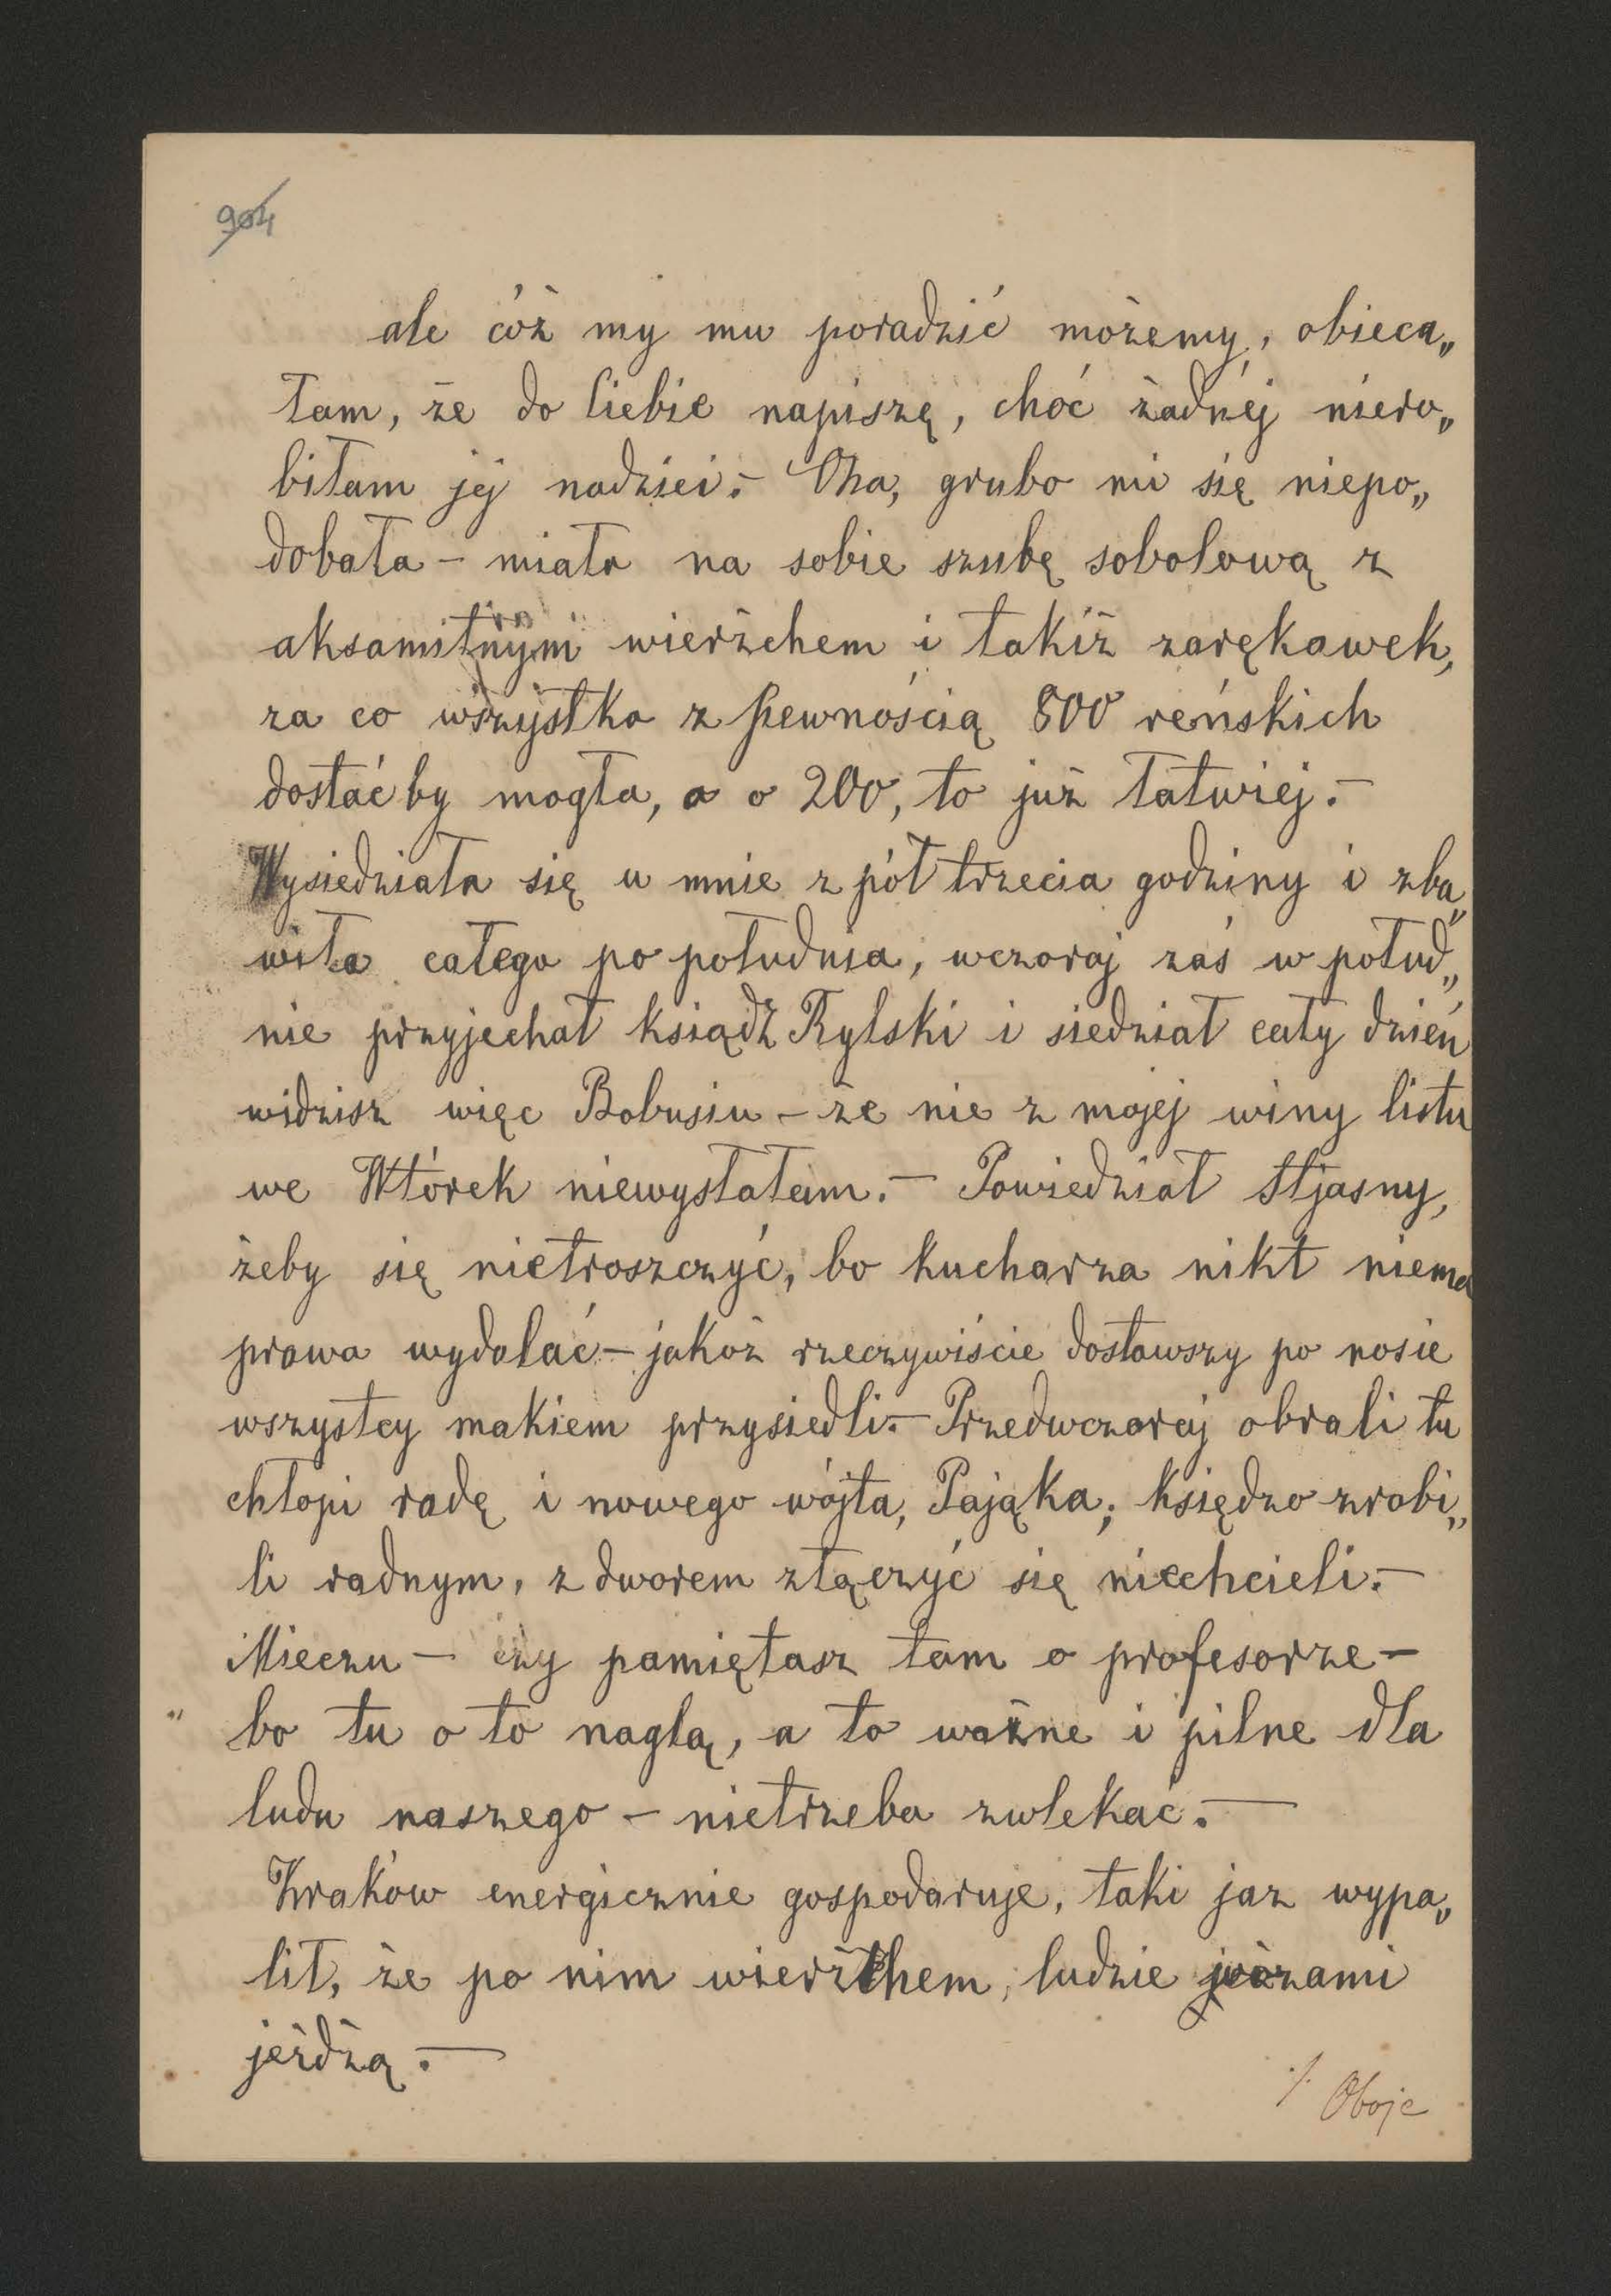 904
ale cóż my mu poradzić możemy, obieca„
łam, że do Ciebie napiszę, choć żadnéj niero„
biłam jej nadziei.– Ona, grubo mi się niepo„
dobała – miała na sobie szubę sobolową z
aksamitnym wierżchem i takiż zarękawek,
za co wszystko z pewnością 800 reńskich
dostać by mogła, a o 200, to już łatwiej.–
Wysiedziała się u mnie z pół trzecia godziny i zba„
wiła całego po południa, wczoraj zaś w połud„
nie przyjechał ksiądz Rylski i siedział cały dzień
widzisz więc Bobusiu – że nie z mojej winy listu
we Wtórek niewysłałam.– Powiedział Stjasny,
żeby się nietroszczyć, bo kucharza nikt niema
prawa wydalać – jakoż rzeczywiście dostawszy po nosie
wszystcy makiem przysiedli.– Przedwczoraj obrali tu
chłopi radę i nowego wójta, Pająka; księdza zrobi„
li radnym, z dworem złączyć się niechcieli.–
Mieczu – czy pamiętasz tam o profesorze –
bo tu o to naglą, a to ważne i pilne dla
ludu naszego – nietrzeba zwlekać.–
Kraków energicznie gospodaruje, taki jaz wypa„
lił, że po nim wierżchem, ludzie wozami
jeżdżą.–
./. Oboje